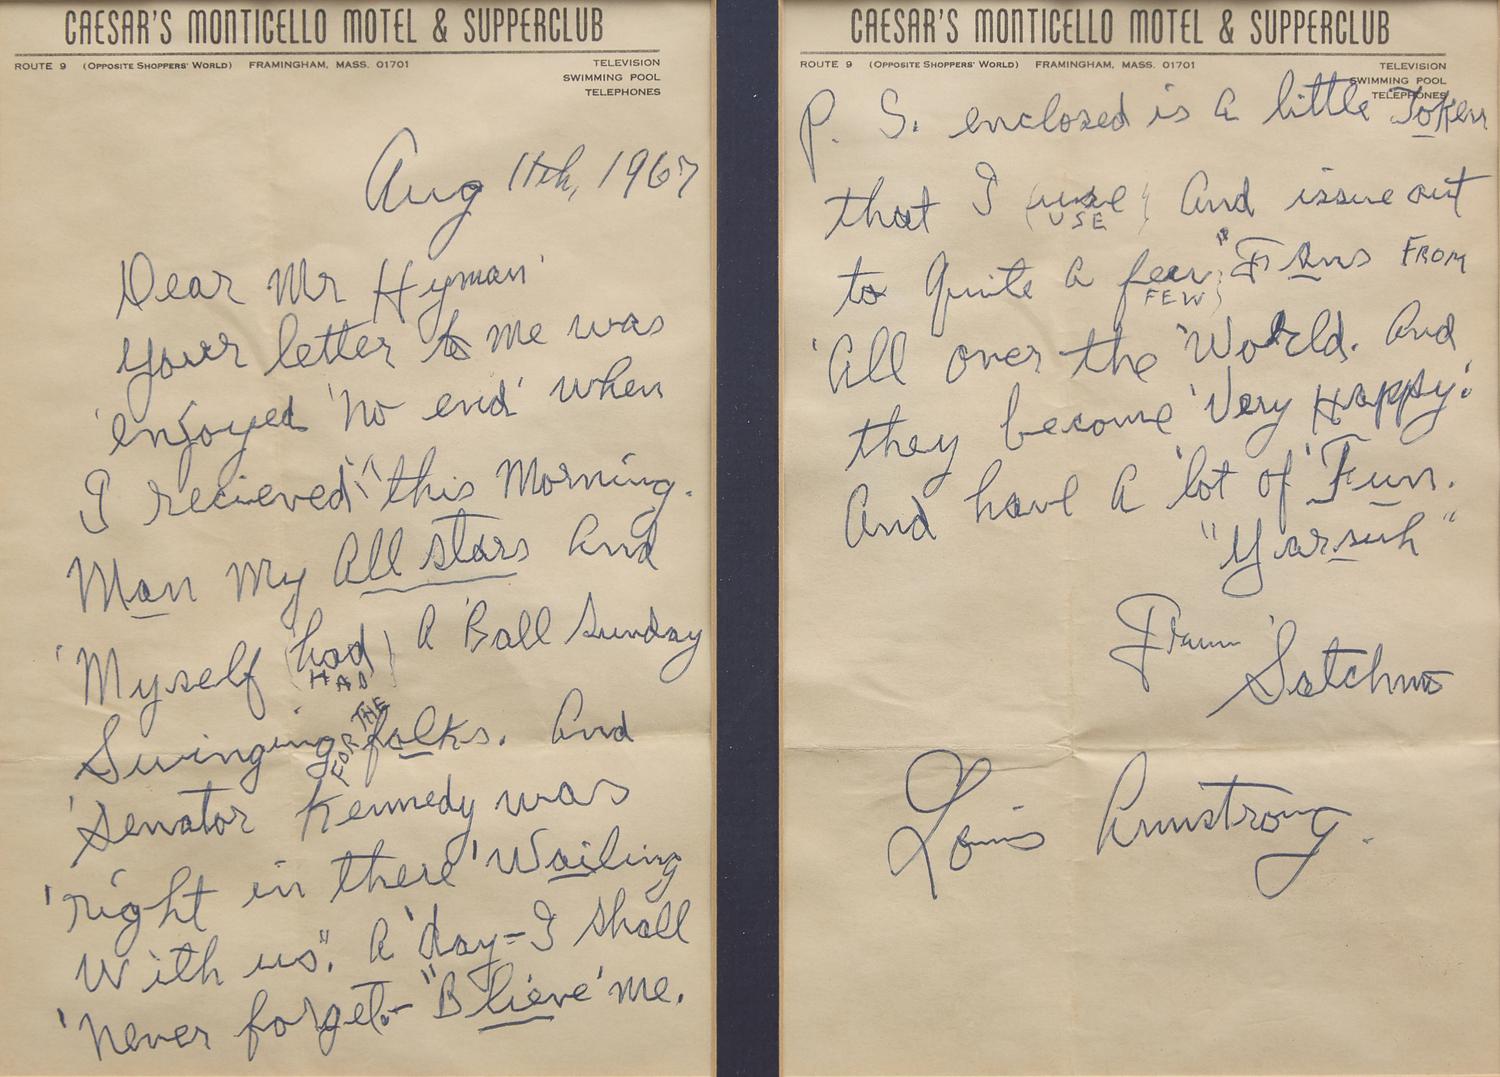 CAESAR'S MONTICELLO MOTEL & SUPPERCLUB
ROUTE 9 (OPPOSITE SHOPPERS' WORLD) FRAMINGHAM, MASS. 01701
TELEVISION
SWIMMING POOL
TELEPHONES
Aug 11th, 1967
Dear Mr Hyman'
Your letter to me was
'enjoyed 'No end' when
I recieved "this Morning.
Man My All stars And
'Myself (had) A 'Ball Sunday
HAD
FOR THE
Swinging folks. And
'Senator Kennedy was
'right in there 'Wailing
With us". A 'day–I shall
'Never forget.– "Blieve' me.
CAESAR'S MONTICELLO MOTEL & SUPPERCLUB
ROUTE 9 (OPPOSITE SHOPPERS' WORLD) FRAMINGHAM, MASS. 01701
TELEVISION
SWIMMING POOL
TELEPHONES
P. S. enclosed is A little Token
that I (use) And issue out
USE
to Quite A few "Fans FROM
FEW
'All over the 'World. And
they become 'Very Happy.'
And have A 'lot of' Fun.
"Yarsuh"
From 'Satchmo
Louis Armstrong.